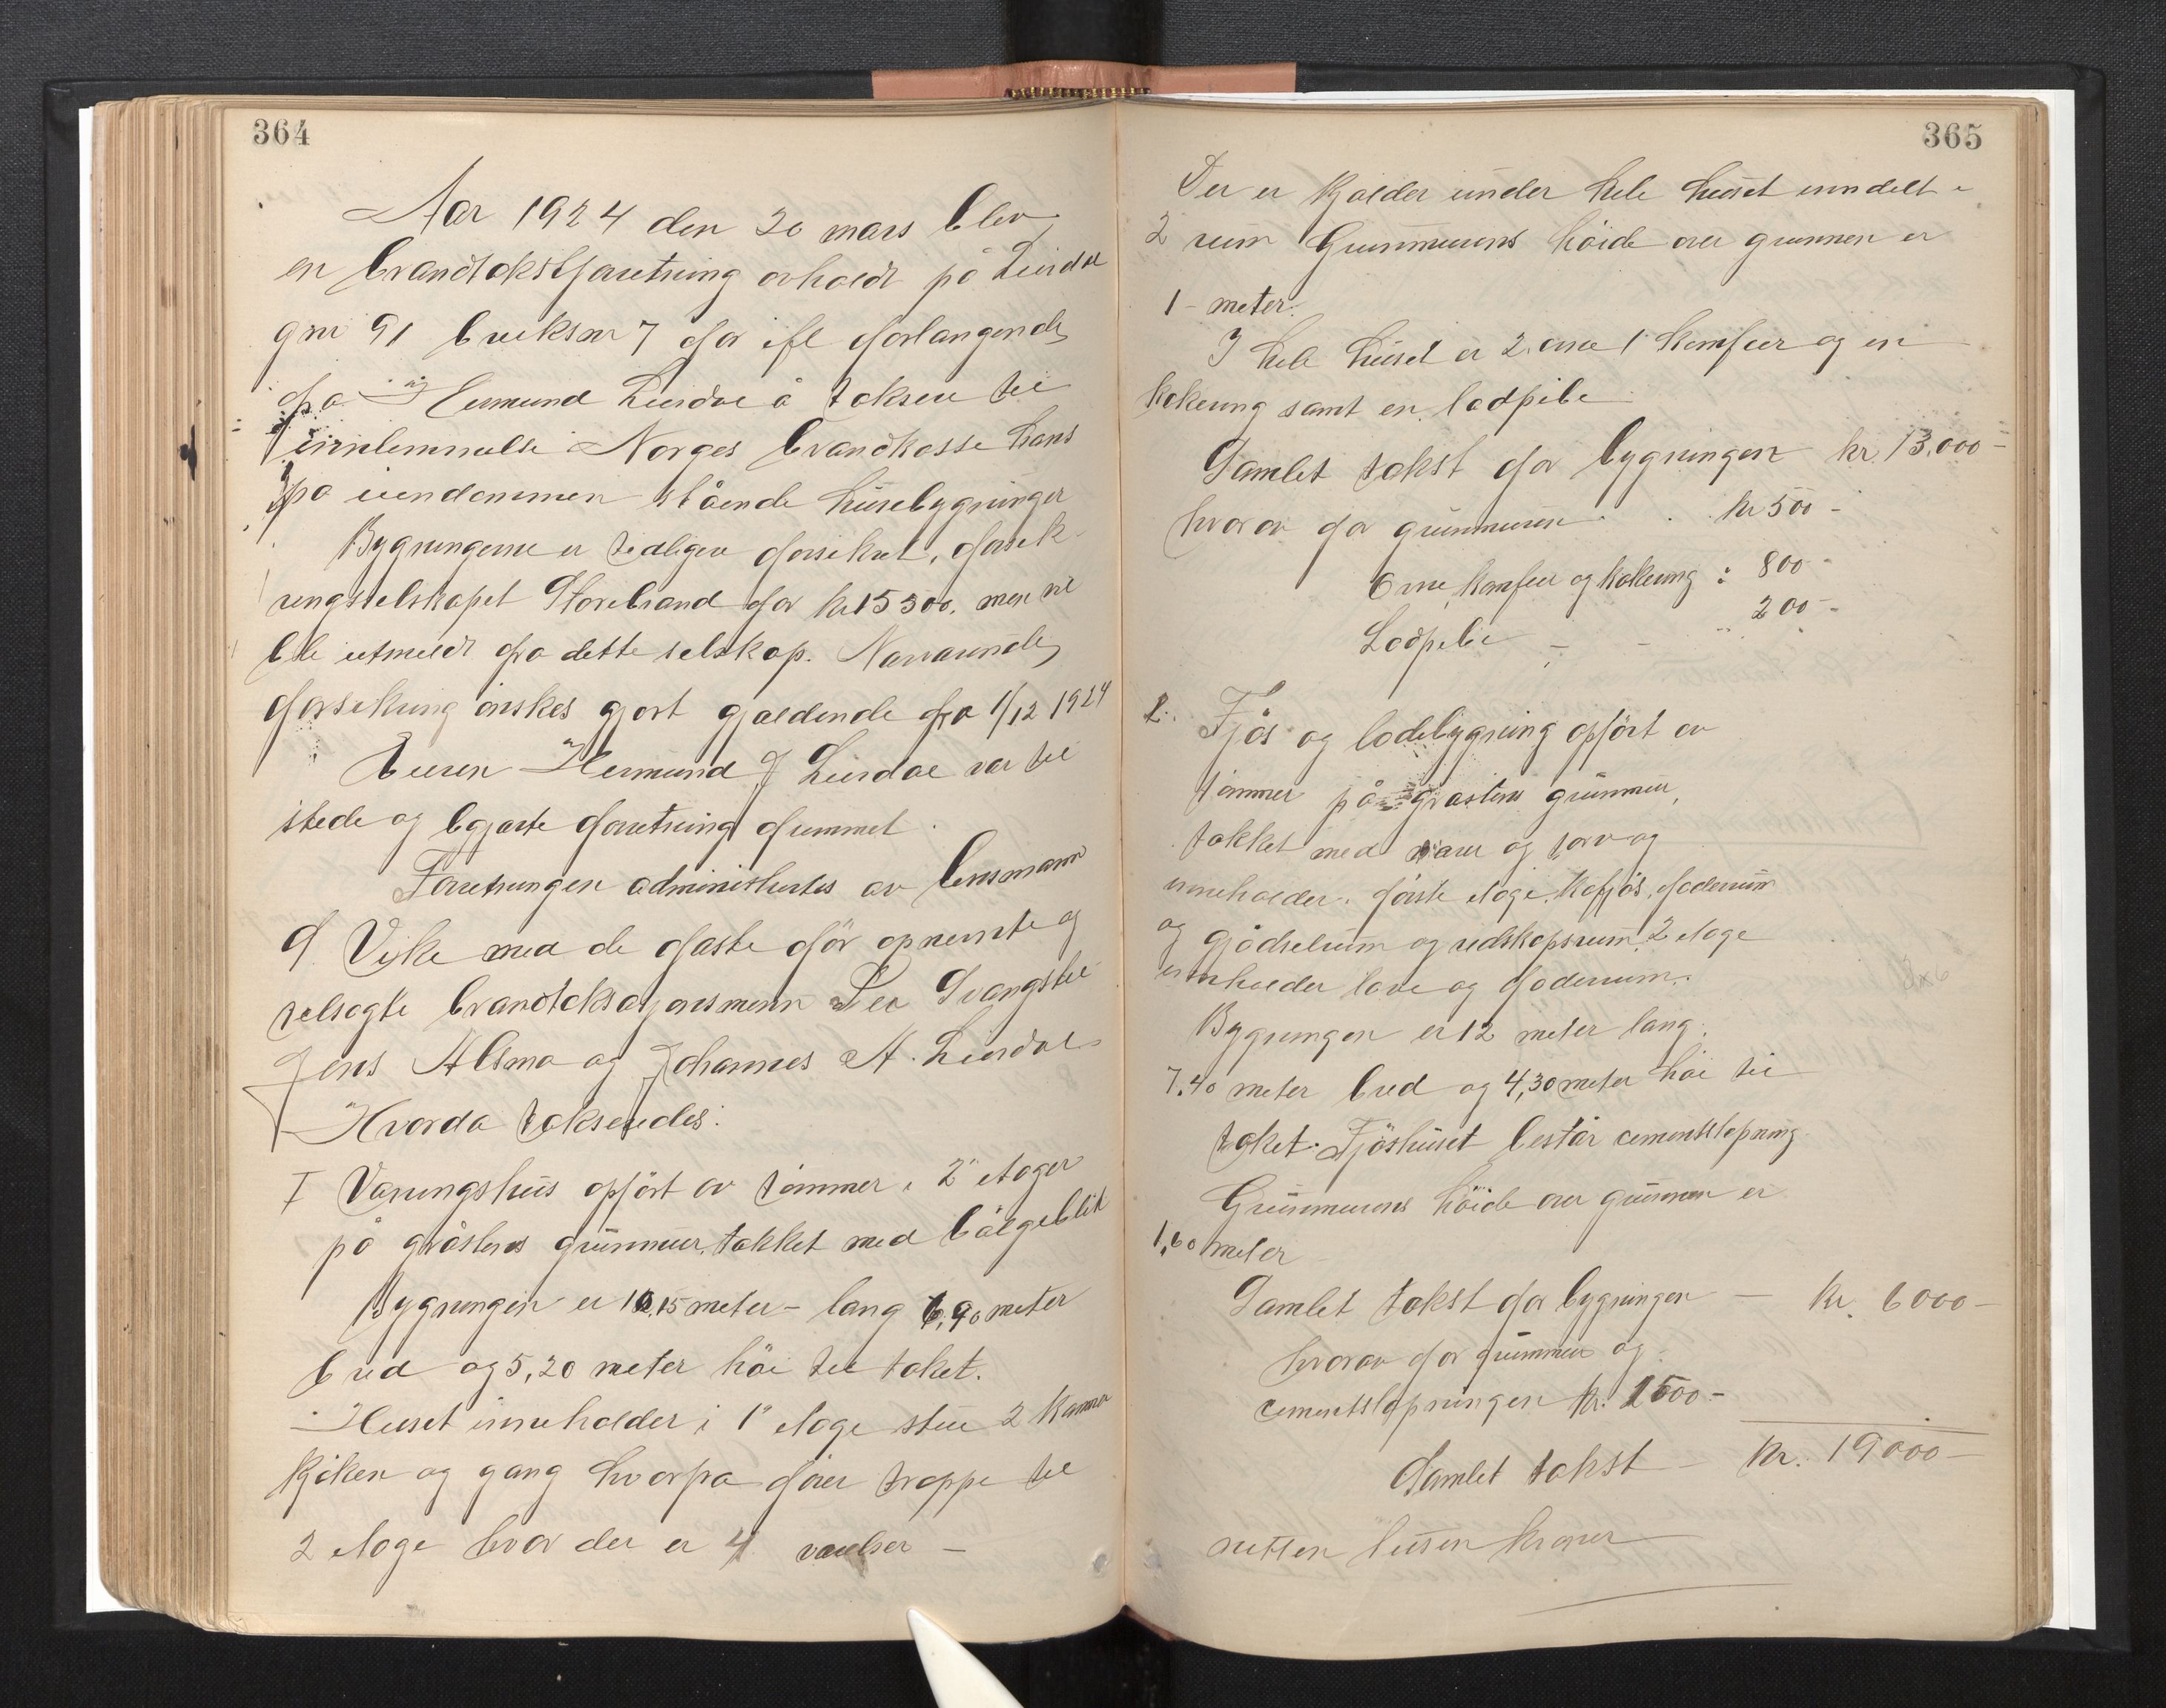 364
Aar 1924 den 20 mars blev
en brandtakstforretning avholdt på Leirdal
gnr 91 bruksnr 7 for ifl forlangende
fra Hermund Leirdal å taksere til
innlemmelse i Norges brandkasse hans
på eiendommen stående husebygninger
Bygningerne er tidligere forsikret i forsik-
ringsselskapet Storebrand for kr 15300, men vil
bli utmeldt fra dette selskap. Nærværende
forsikring ønskes gjort gjældende fra 1/12 1924
Eieren Hermund J Leirdal var til
stede og begjærte forretning fremmet.
Forretningen administertes av lensmann
Vike med de faste før opnevnte og
velsagte brandtakstasjonsmenn Per Svangstu
Jens Alsmo og Johannes A. Leirdal
Hvorda takseredes:
I Vaningshus opført av tømmer i 2 etager
på gråstens grunnmur, tækket med bølgeblik
Bygningen er 10,15 meter lang 6,90 meter
bred og 5,20 meter høi til taket.
Huset inneholder i 1ste etage stue 2 kamer
kjøken og gang hvorfra fører trappe til
2 etage hvor der er 4 værelser
365
Der er kjælder under hele huset inndelt i
2 rum Grunnmurens høide over grunnen er
1 meter.
I hele huset er 2 ovne 1 komfur og en
kokeovn samt en ladpibe
Samlet takst for bygningen kr. 13.000-
hvorav for grunnmuren kr 500-
Ovne, komfur og kokeovn : 800-
Ladpibe - - 200-
2. Fjøs og ladebygning opført av
tømmer på gråstens grunnmur,
tækket med næver og torv og
inneholder i første etage, kofjøs, foderrum
og gjødselrum og redskapsrum, 2 etage
inneholder lave og foderrum.
Bygningen er 12 meter lang,
7,40 meter bred og 4,30 meter høi til
taket. Fjøshuset består cementstøpning
Grunnmurens høide over grunnen er
1,60 meter
Samlet takst for bygningen - kr. 6000-
hvorav for grunnmur og
cementstøpningen kr. 1500-
Samlet takst - kr. 19000-
nitten tusen kroner